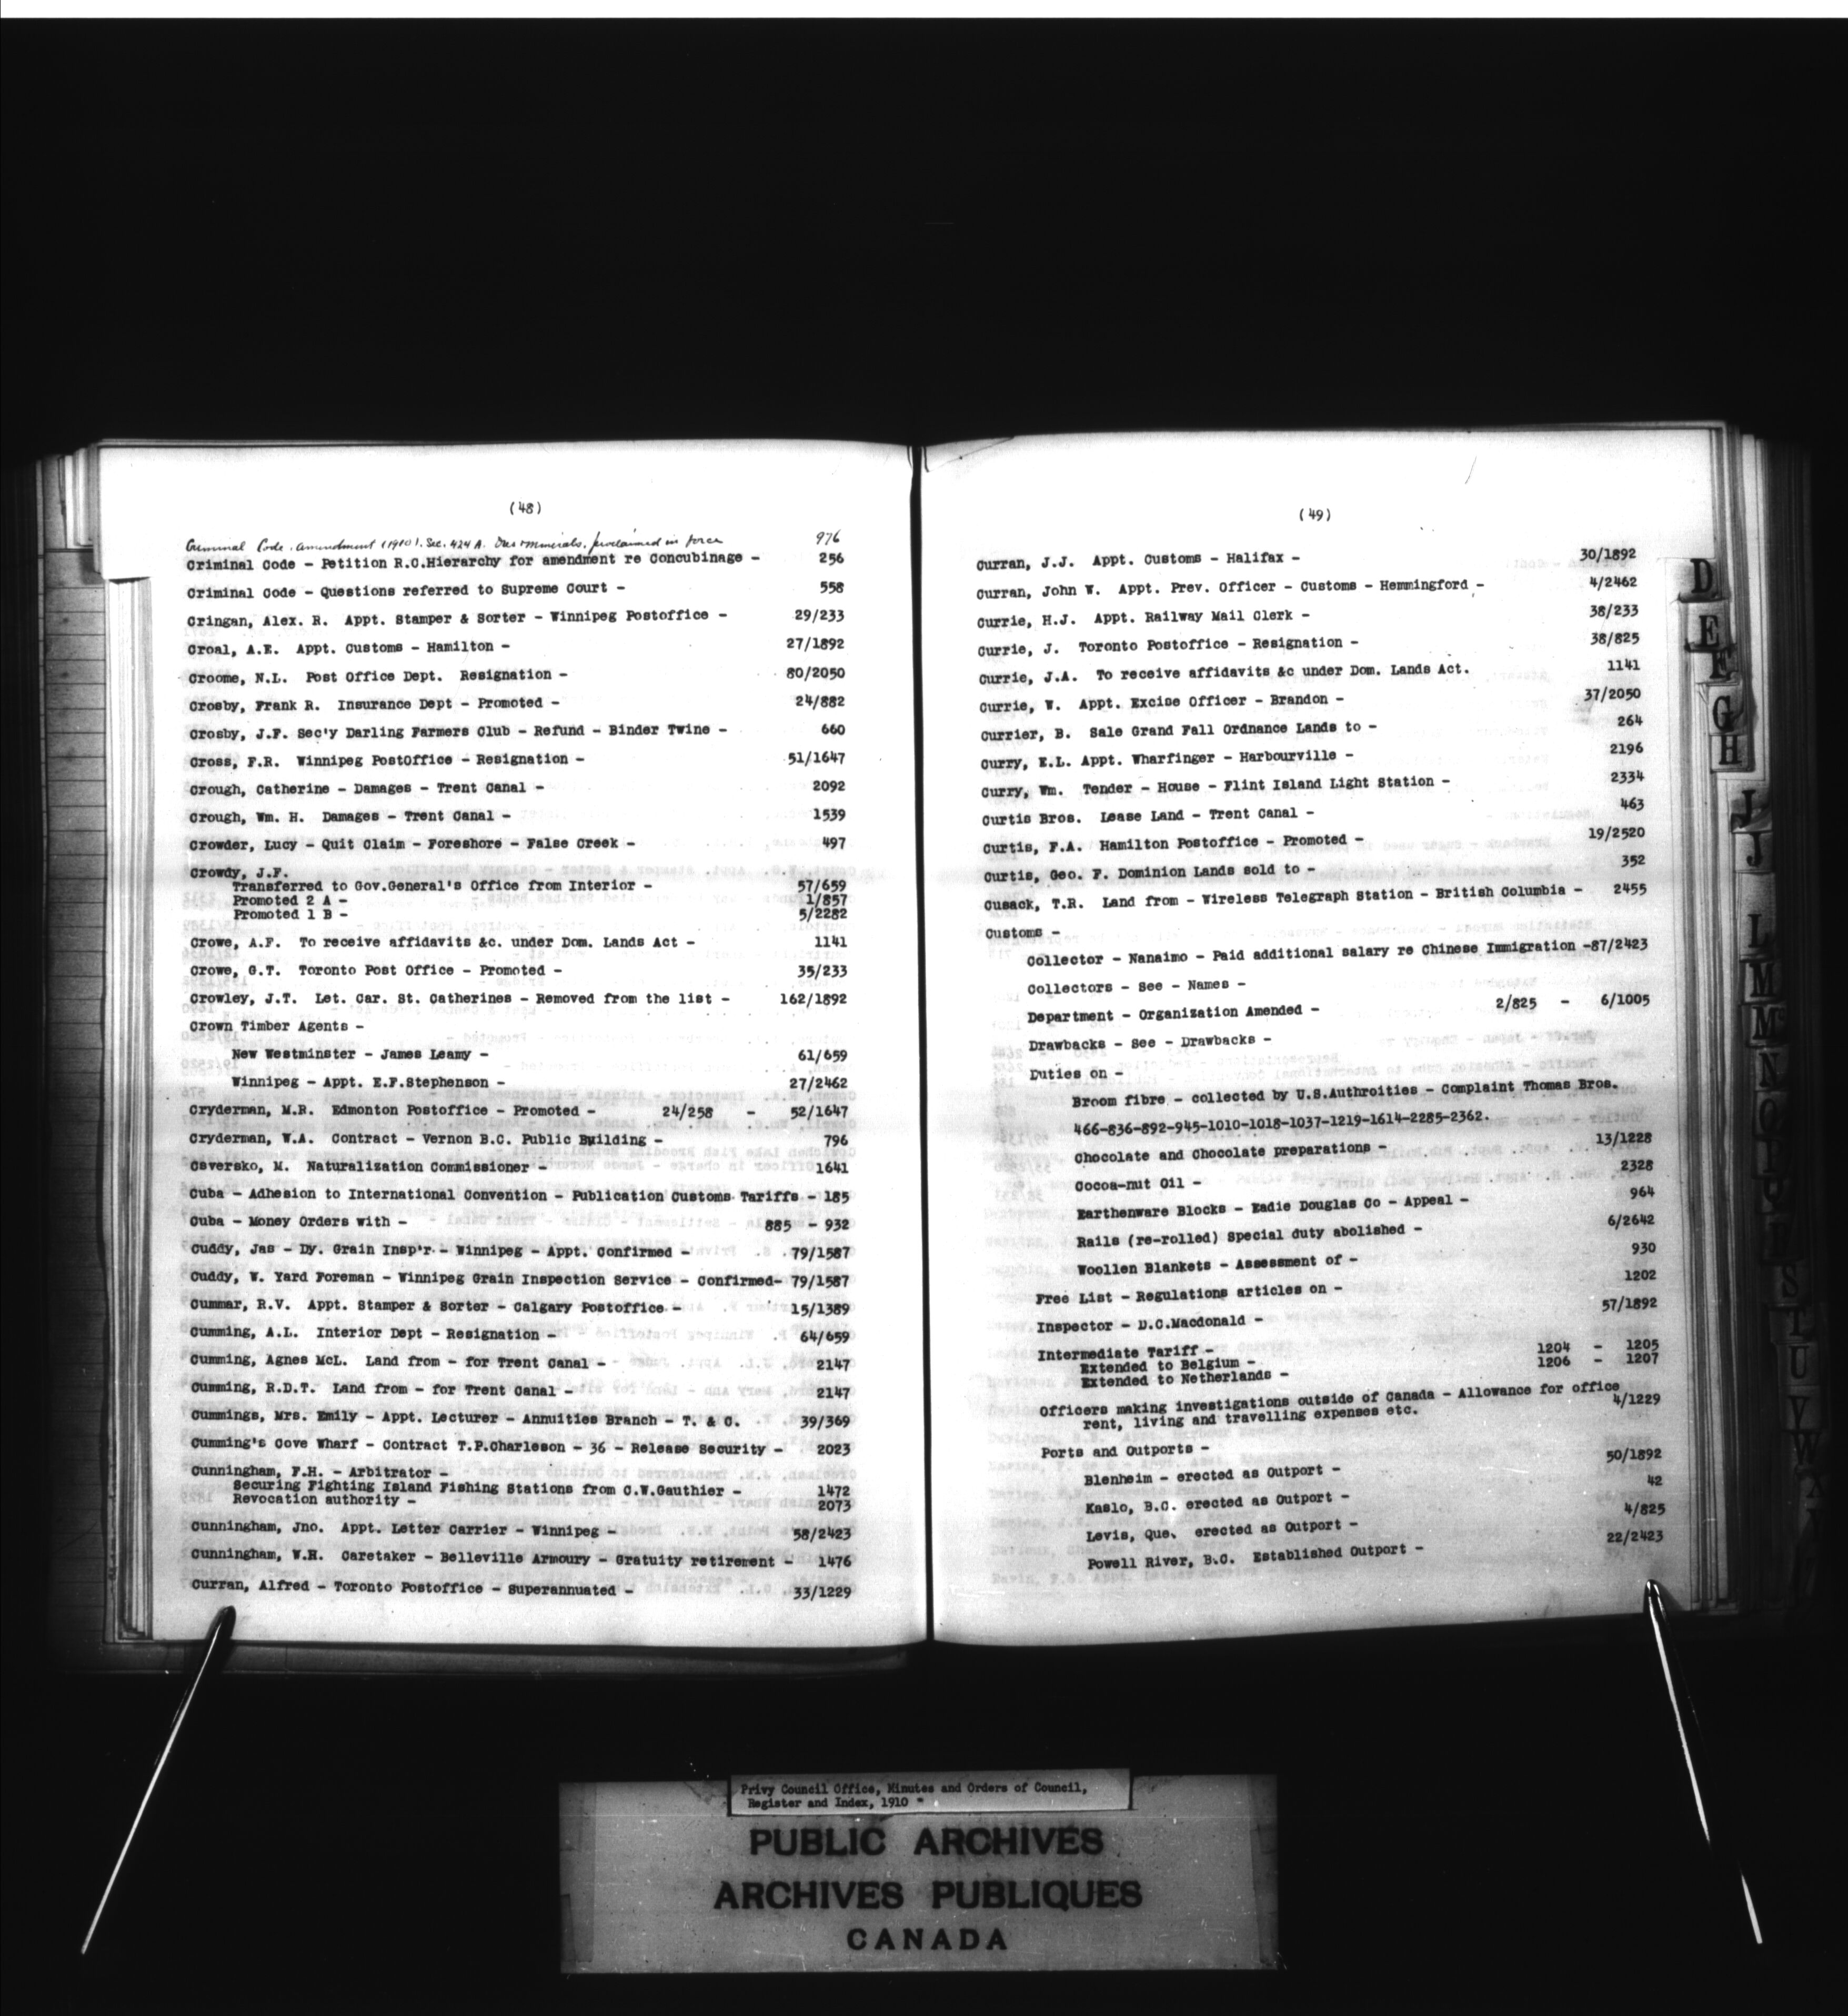 (48)
Criminal Code. amendment (1910). Sec. 424 A. Ores & minerals, proclaimed in force 976
Criminal Code - Petition R.C.Hierarchy for amendment re Concubinage - 256
Criminal Code - Questions referred to Supreme Court - 558
Cringan, Alex. R. Appt. Stamper & Sorter - Winnipeg Postoffice - 29/233
Croal, A.E. Appt. Customs - Hamilton - 27/1892
Croome, N.L. Post Office Dept. Resignation - 80/2050
Crosby, Frank R. Insurance Dept - Promoted - 24/882
Crosby, J.F. Sec'y Darling Farmers Club - Refund - Binder Twine - 660
Cross, F.R. Winnipeg PostOffice - Resignation - 51/1647
Crough, Catherine - Damages - Trent Canal - 2092
Crough, Wm. H. Damages - Trent Canal - 1539
Crowder, Lucy - Quit Claim - Foreshore - False Creek - 497
Crowdy, J.F.
Transferred to Gov.General's Office from Interior - 57/659
Promoted 2 A - 1/857
Promoted 1 B - 5/2282
Crowe, A.F. To receive affidavits &c. under Dom. Lands Act - 1141
Crowe, G.T. Toronto Post Office - Promoted - 35/233
Crowley, J.T. Let. Car. St. Catherines - Removed from the list - 162/1892
Crown Timber Agents -
New Westminster - James Leamy - 61/659
Winnipeg - Appt. E.F.Stephenson - 27/2462
Cryderman, M.R. Edmonton Postoffice - Promoted - 24/258 - 52/1647
Cryderman, W.A. Contract - Vernon B.C. Public Building - 796
Csversko, M. Naturalization Commissioner - 1641
Cuba - Adhesion to International Convention - Publication Customs Tariffs - 185
Cuba - Money Orders with - 885 - 932
Cuddy, Jas - Dy. Grain Insp'r - Winnipeg - Appt. Confirmed - 79/1587
Cuddy, W. Yard Foreman - Winnipeg Grain Inspection Service - Confirmed- 79/1587
Cummar, R.V. Appt. Stamper & Sorter - Calgary Postoffice - 15/1389
Cumming, A.L. Interior Dept - Resignation - 64/659
Cumming, Agnes McL. Land from - for Trent Canal - 2147
Cumming, R.D.T. Land from - for Trent Canal - 2147
Cummings, Mrs. Emily - Appt. Lecturer - Annuities Branch - T. & C. 39/369
Cumming's Cove Wharf - Contract T.P.Charleson - 36 - Release Security - 2023
Cunningham, F.H. - Arbitrator -
Securing Fighting Island Fishing Stations from C.W.Gauthier - 1472
Revocation authority - 2073
Cunningham, Jno. Appt. Letter Carrier - Winnipeg - 58/2423
Cunningham, W.H. Caretaker - Belleville Armoury - Gratuity retirement - 1476
Curran, Alfred - Toronto Postoffice - Superannuated - 33/1229
(49)
Curran, J.J. Appt. Customs - Halifax - 30/1892
Curran, John W. Appt. Prev. Officer - Customs - Hemmingford - 4/2462
Currie, H.J. Appt. Railway Mail Clerk - 38/233
Currie, J. Toronto Postoffice - Resignation - 38/825
Currie, J.A. To receive affidavits &c under Dom. Lands Act. 1141
Currie, W. Appt. Excise Officer - Brandon - 37/2050
Currier, B. Sale Grand Fall Ordnance Lands to - 264
Curry, E.L. Appt. Wharfinger - Harbourville - 2196
Curry, Wm. Tender - House - Flint Island Light Station - 2334
Curtis Bros. Lease Land - Trent Canal - 463
Curtis, F.A. Hamilton Postoffice - Promoted - 19/2520
Curtis, Geo. F. Dominion Lands sold to - 352
Cusack, T.R. Land from - Wireless Telegraph Station - British Columbia - 2455
Customs -
Collector - Nanaimo - Paid additional salary re Chinese Immigration -87/2423
Collectors - See - Names -
Department - Organization Amended - 2/825 - 6/1005
Drawbacks - See - Drawbacks -
Duties on -
Broom fibre - collected by U.S.Authroities - Complaint Thomas Bros.
466-836-892-945-1010-1018-1037-1219-1614-2285-2362.
Chocolate and Chocolate preparations - 13/1228
Cocoa-nut Oil - 2328
Earthenware Blocks - Eadie Douglas Co - Appeal - 964
Rails (re-rolled) Special duty abolished - 6/2642
Woollen Blankets - Assessment of - 930
Free List - Regulations articles on - 1202
Inspector - D.C.Macdonald - 57/1892
Intermediate Tariff -
Extended to Belgium - 1204 - 1205
Extended to Netherlands - 1206 - 1207
Officers making investigations outside of Canada - Allowance for office
rent, living and travelling expenses etc. 4/1229
Ports and Outports -
Blenheim - erected as Outport - 50/1892
Kaslo, B.C. erected as Outport - 42
Levis, Que. erected as Outport - 4/825
Powell River, B.C. Established Outport - 22/2423
D
E
F
G
H
J
L
M
N
O
P
S
T
U
V
W
Privy Council Office, Minutes and Orders of Council,
Register and Index, 1910
PUBLIC ARCHIVES
ARCHIVES PUBLIQUES
CANADA